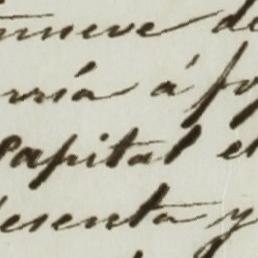 nueve de
rría á fo
Capital e
esenta y